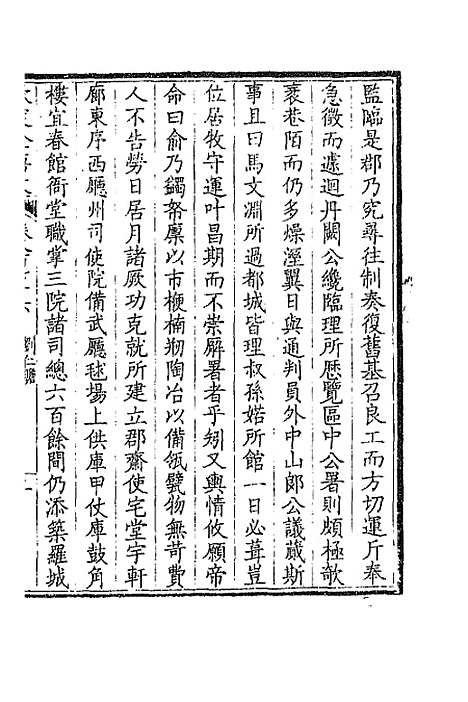 監臨是郡乃究尋往制奏復舊基召良工而方切運斤奉
急徵而遽迴丹闕公纔臨理所歷覽區中公署則頗極欹
衺巷陌而仍多燥溼翼日與通判員外中山郎公議葳斯
事且曰馬文淵所過都城皆理叔孫婼所館一日必葺豈
位居牧守運叶昌期而不崇廨署者乎矧又輿情攸願帝
命曰俞乃鐲帑廪以市楩楠剏陶冶以備瓴甓物無苛費
人不告勞日居月諸厥功克就所建立郡齋使宅堂宇軒
廊東序西廳州司使院備武廳毬場上供庫甲仗庫鼓角
樓宜春館衙堂職掌三院諸司總六百餘間仍添築羅城
劉仁贍